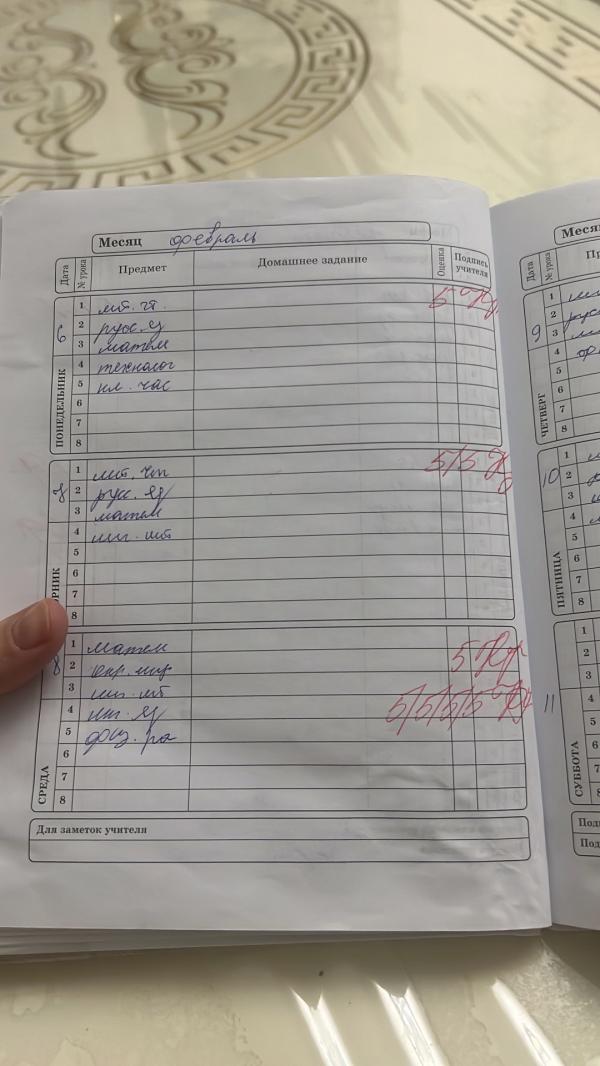 Месяц февраль
Дата № урока Предмет Домашнее задание Оценка Подпись учителя
ПОНЕДЕЛЬНИК 6
1 лит. чт. 5
2 русс. яз
3 матем
4 технолог
5 кл. час
6
7
8
ОРНИК
1 лит. чт 5/5
2 русс. яз
3 матем
4
5
6
7
8
СРЕДА 8
1 матем
2 окр. мир 5
3
4 5/5/5/5
5 физ. ра
6
7
8
Для заметок учителя
Меся
Дата № урока
ЧЕТВЕРГ 9
1
2 рус
3
4
5
6
7
8
ПЯТНИЦА 10
1
2
3
4
5
6
7
8
СУББОТА 11
1
2
3
4
5
6
7
8
Под
Под